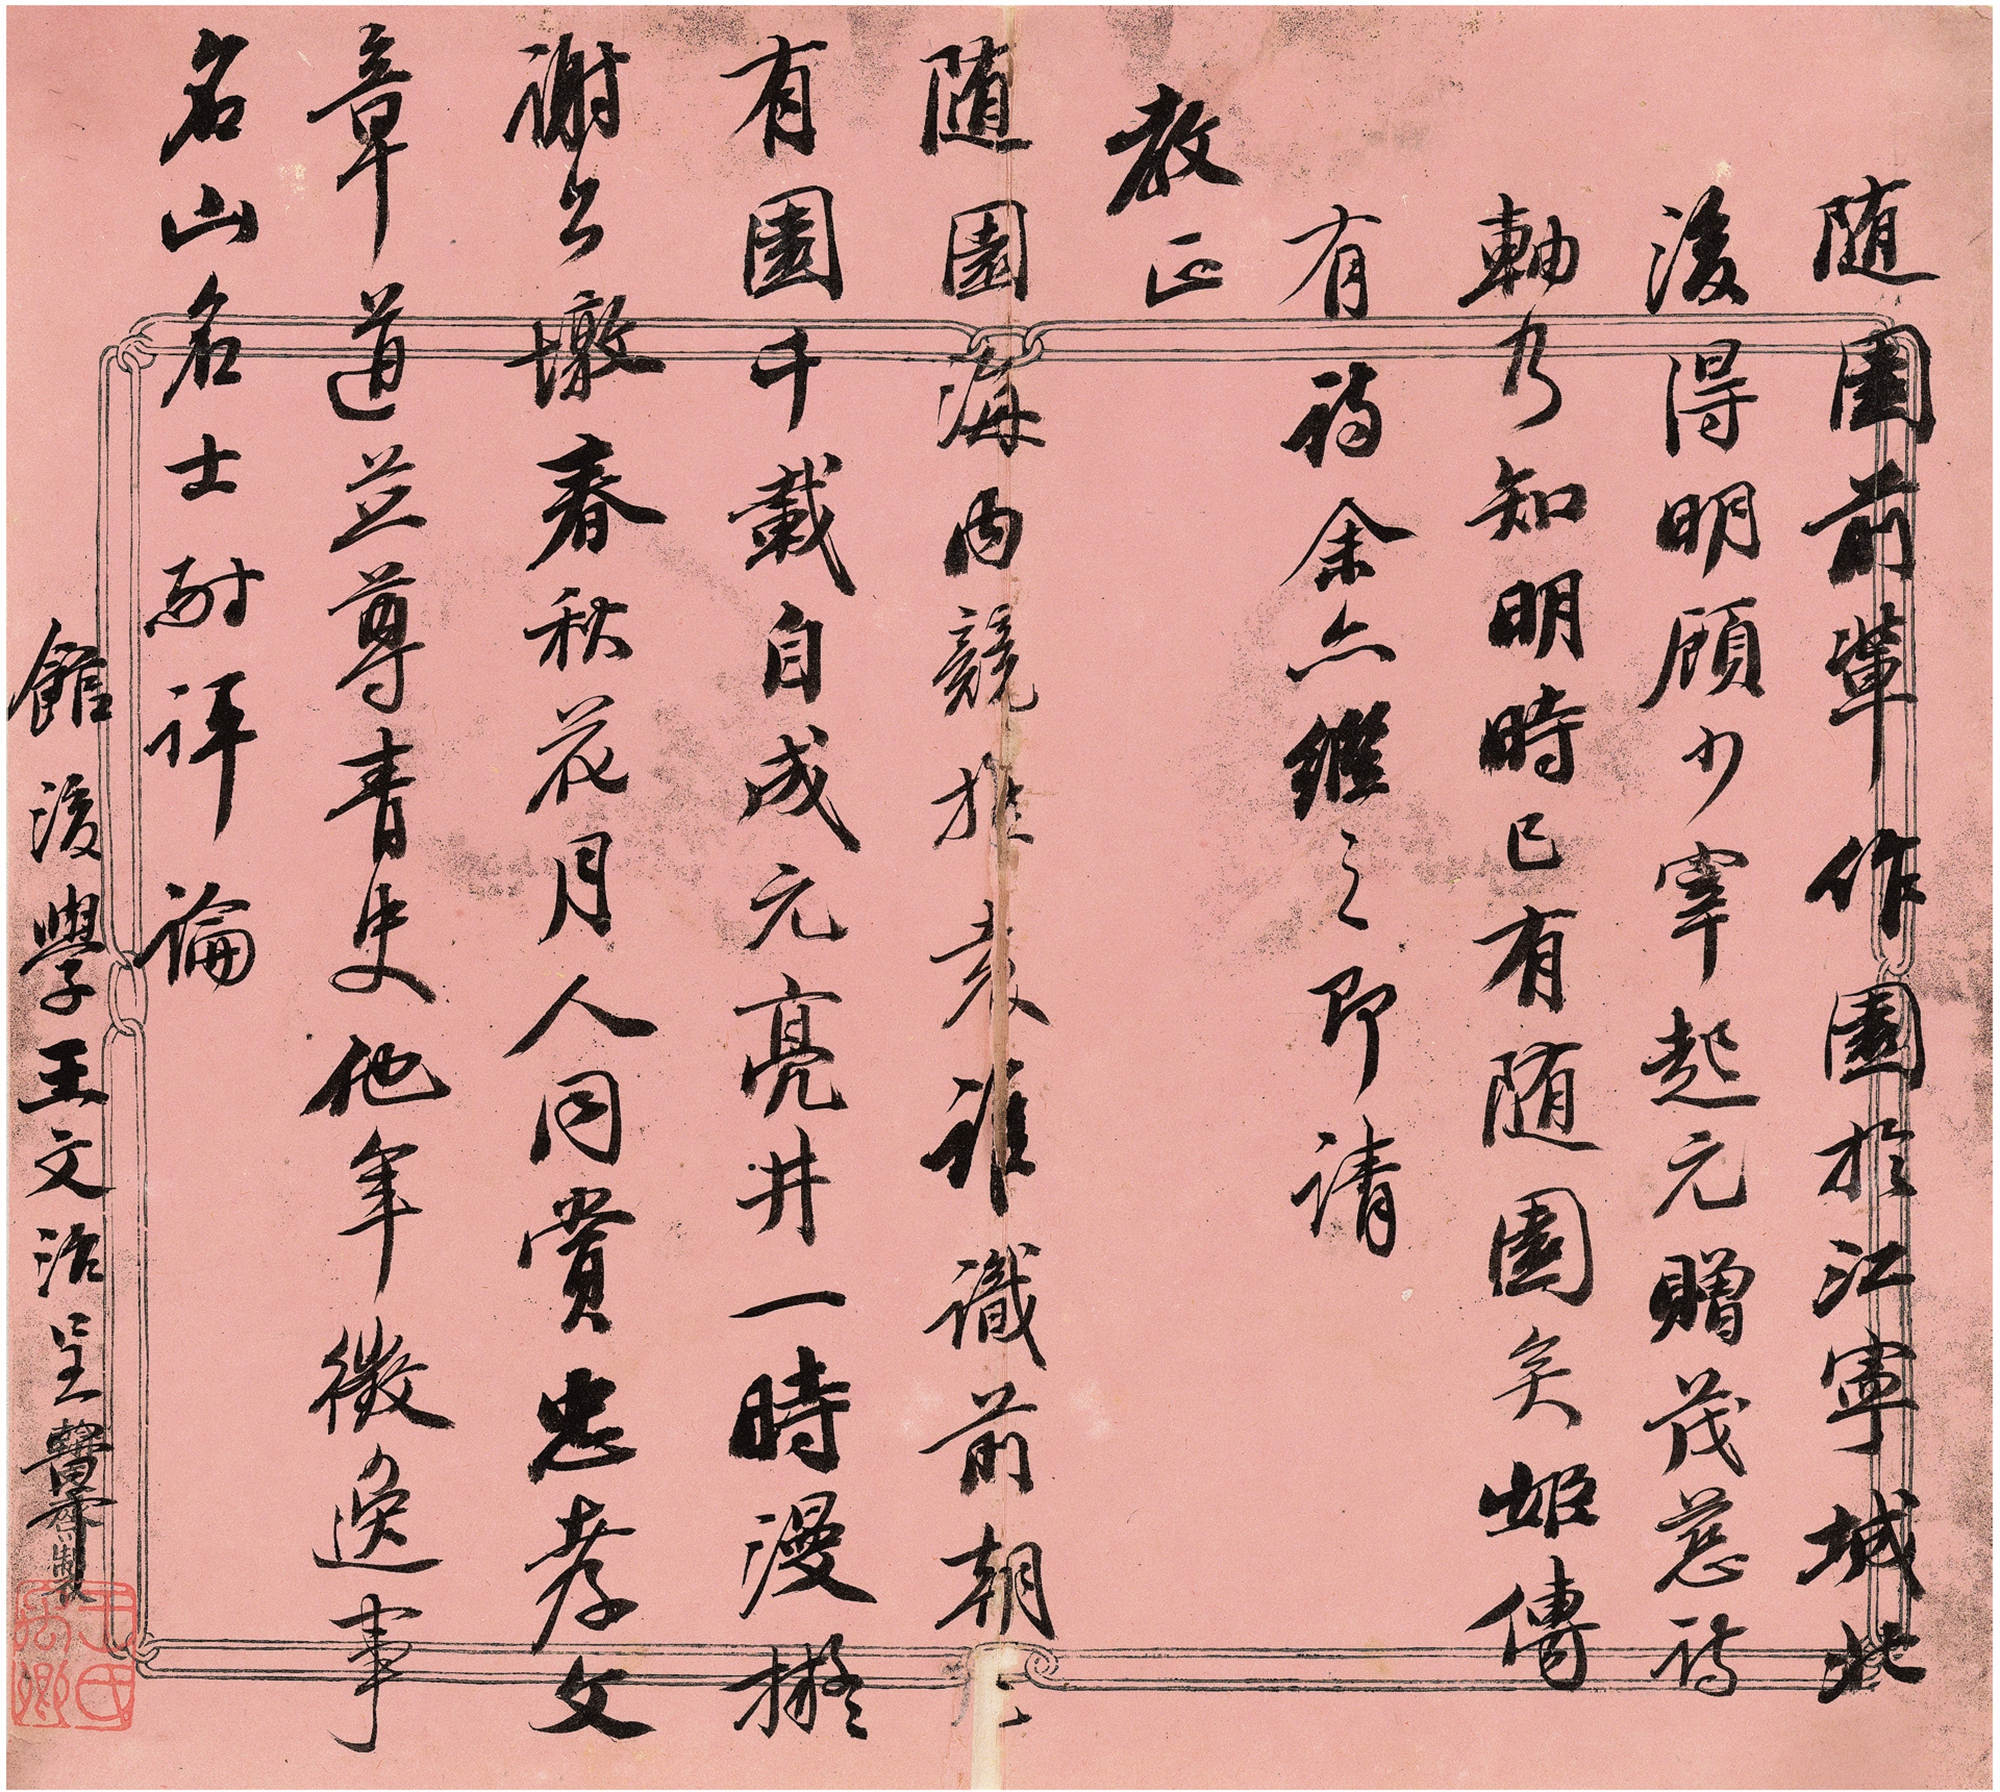 随園前輩作園於江寧城北
後得明顧少宰起元贈茂慈詩
軸乃知明時已有随園矣姬傳
有詩余亦繼之即請
教正
随園海内競推袁誰識前朝已
有園千載自成元亮井一時漫擬
謝公墩春秋花月人同賞忠孝文
章道並尊青史他年徵逸事
名山名士耐評論
館後學王文治呈
製
王氏禹卿